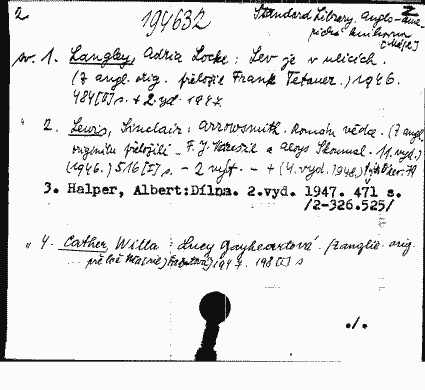 2 194632 Standard Library. Anglo-ame-
rická knihovna
sv. 1. Langley, Adria Locke: Lev je v ulicích.
(Z angl. orig. přeložil Frank Tetauer.) 1946.
484 [I] s. + 2. vyd. 1947.
" 2. Lewis, Sinclair: Arrowsmith. Román vědce. (Z angl.
originálu přeložili F. J. a Aloys Skoumal. 11. vyd.)
(1946.) 516 [I] s. - 2 výt. - + (4. vyd. 1948.)
3. Halper, Albert: Dílna. 2.vyd. 1947. 471 s.
/2-326.525/
" 4. Cather, Willa: Lucy Gayheartová. /Z anglic. orig.
přelož. 1947. 198 [I] s
./.